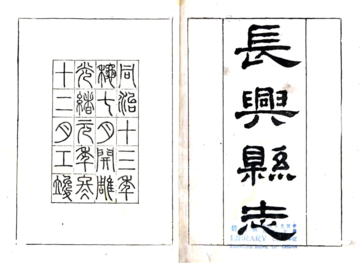 長興縣志
同治十三年
秋七月開雕
光緒元年冬
十二月工竣
LIBRARY